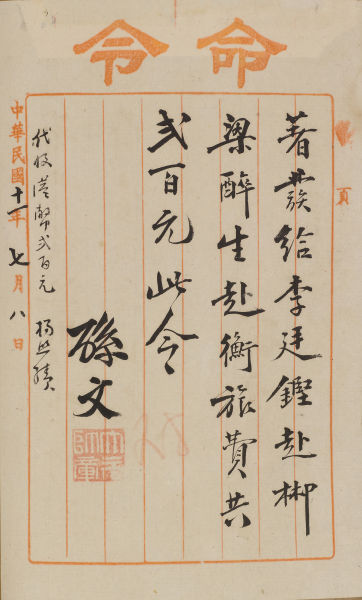 命令
頁
著發給李廷鏗赴郴
梁醉生赴衡旅費共
弍百元此令
孫文
大元帥章
28
代收港幣弍百元
中華民國十一年七月八日